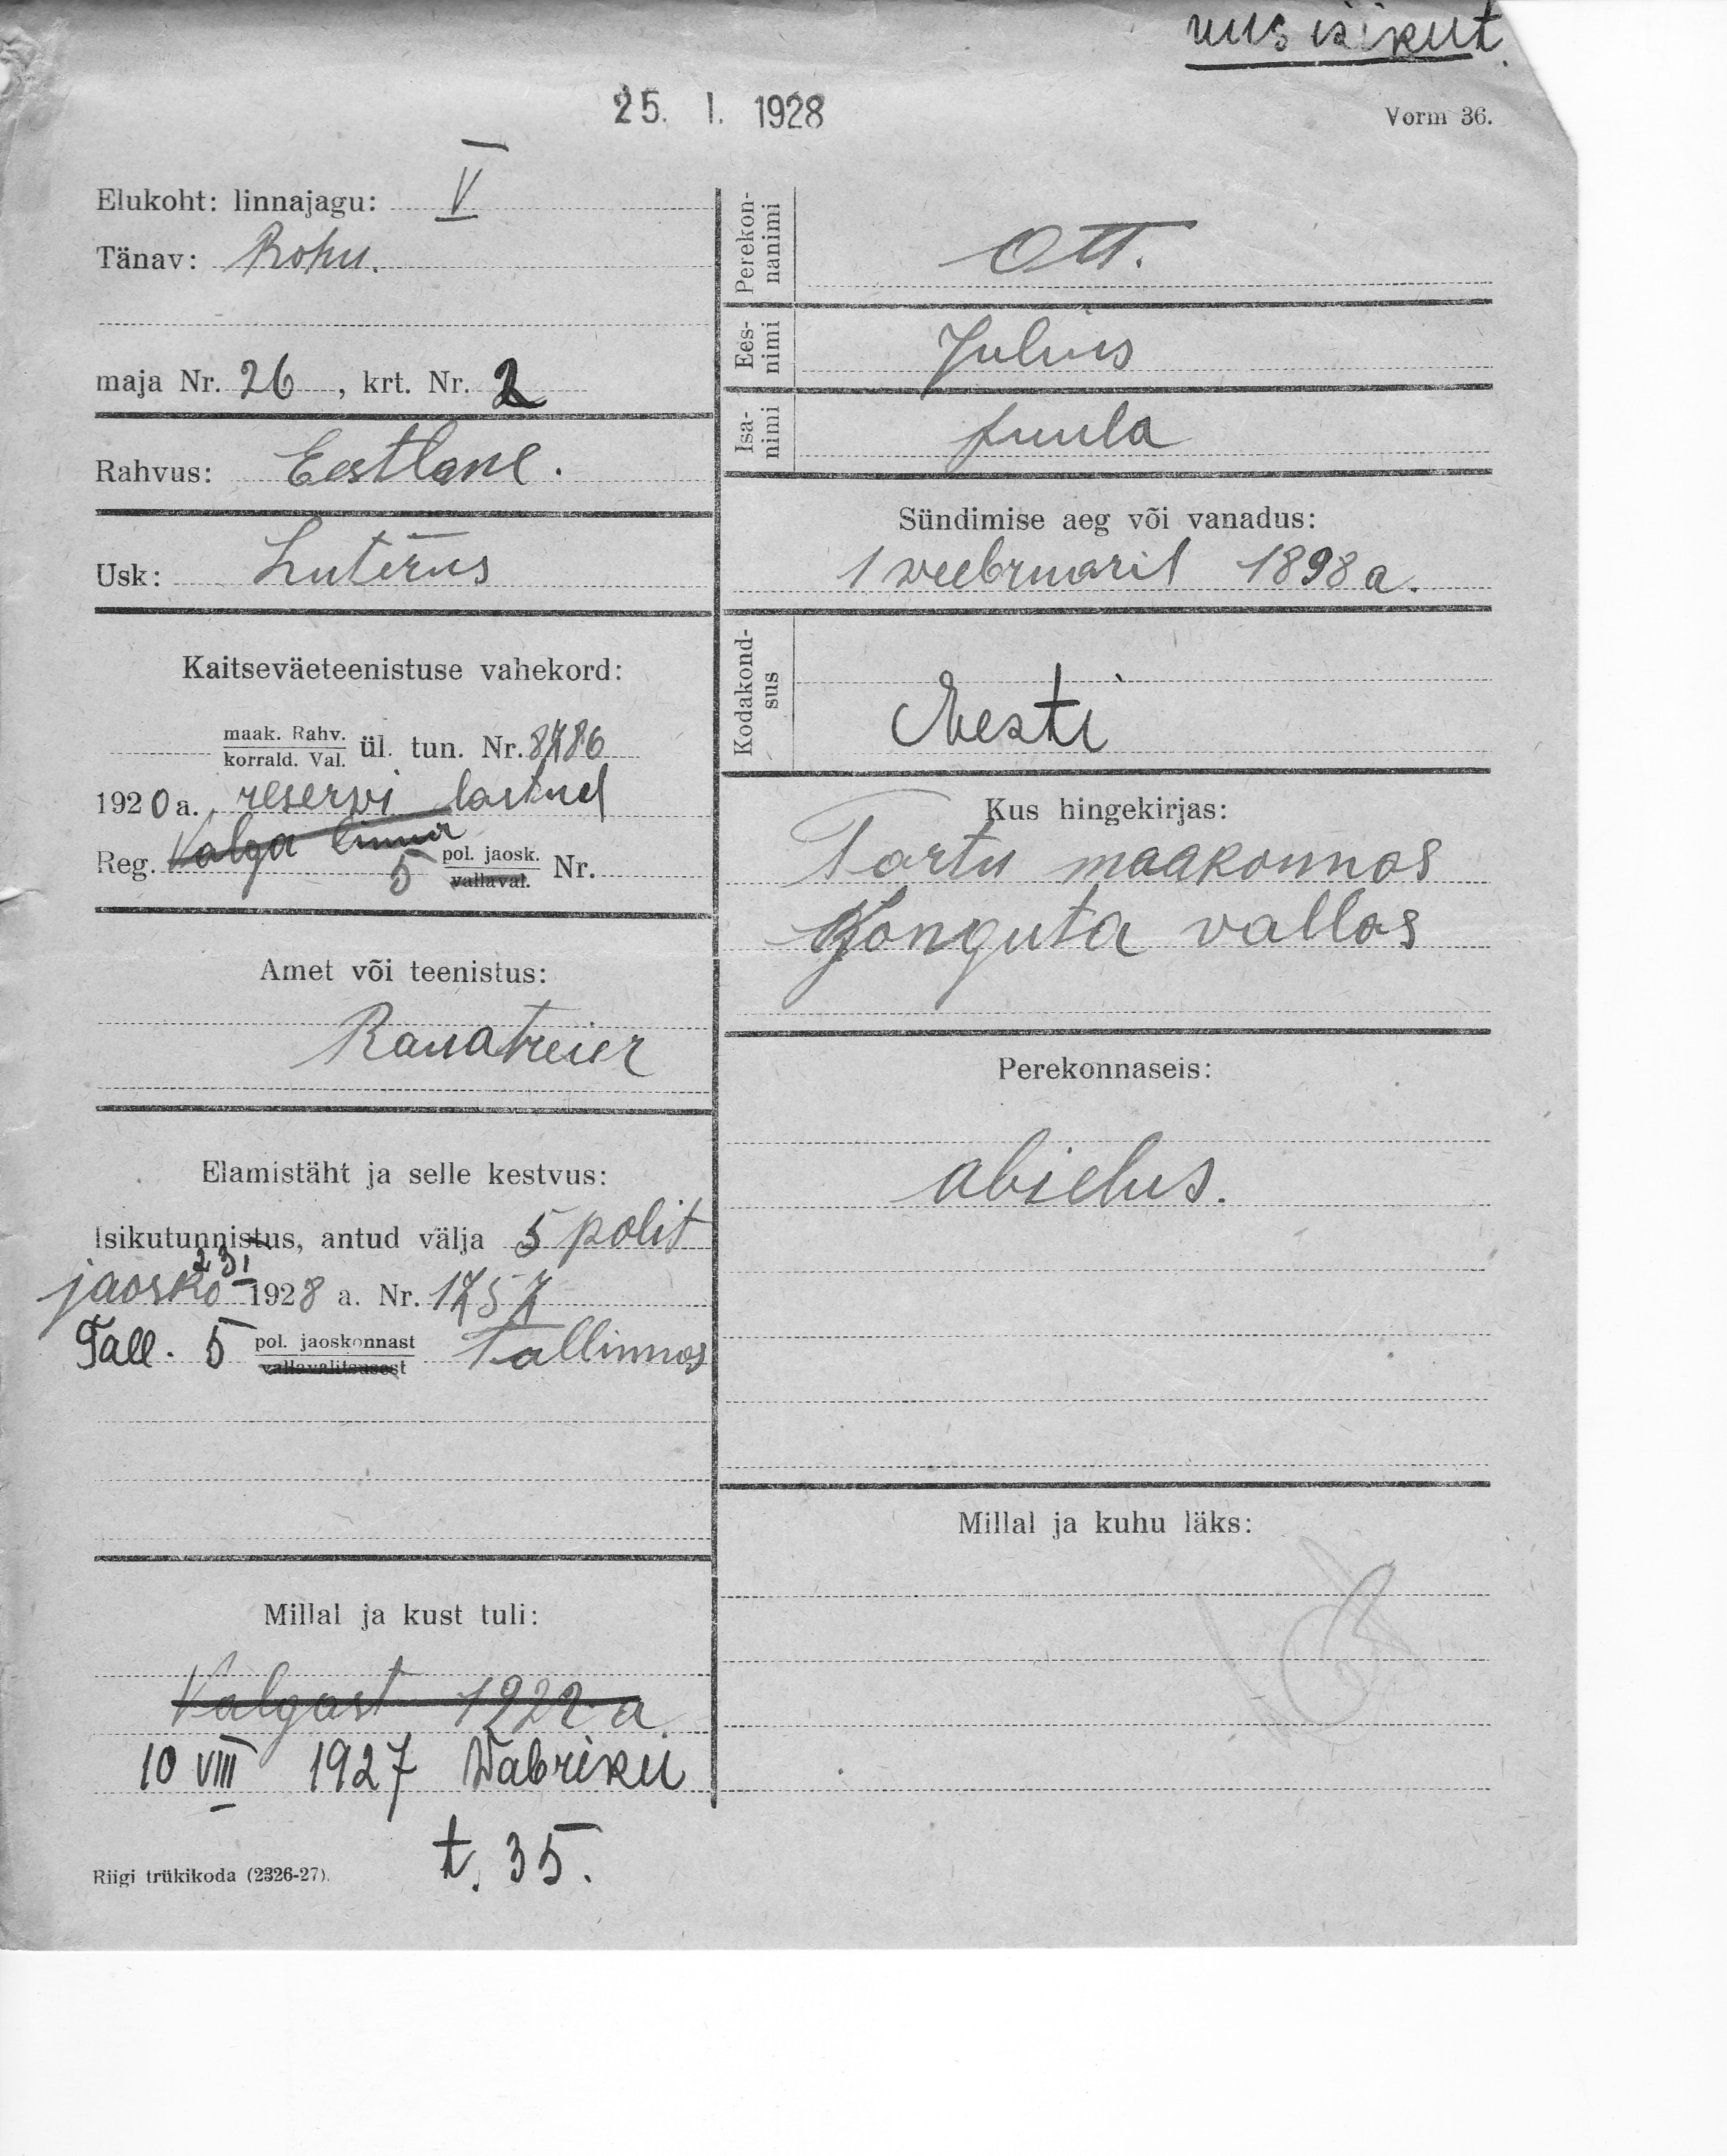 uus isikut.
25. I. 1928
Vorm 36.
Elukoht: linnajagu: V
Tänav: Rohu.
maja Nr. 26, krt. Nr. 2
Rahvus: Eestlane.
Usk: Luterus
Kaitseväeteenistuse vahekord:
maak. Rahv.
korrald. Val. ül. tun. Nr. 8786
1920 a. reservi lastud
Reg. Valga linna 5 pol. jaosk.
vallaval. Nr.
Amet või teenistus:
Rauatreier
Elamistäht ja selle kestvus:
Isikutunnistus, antud välja 5 polit
jaosko 23 I 1928 a. Nr. 1757
Tall. 5 pol. jaoskonnast
vallavalitsusest Tallinnas
Millal ja kust tuli:
Valgast 1922 a.
10 VIII 1927 Wabriku
t. 35.
Riigi trükikoda (2326-27).
Perekon-
nanimi
Ott.
Ees-
nimi
Julius
Isa-
nimi
Juula
Sündimise aeg või vanadus:
1 weebruaril 1898 a.
Kodakond-
sus
Eesti
Kus hingekirjas:
Tartu maakonnas
Konguta vallas
Perekonnaseis:
abielus.
Millal ja kuhu läks: